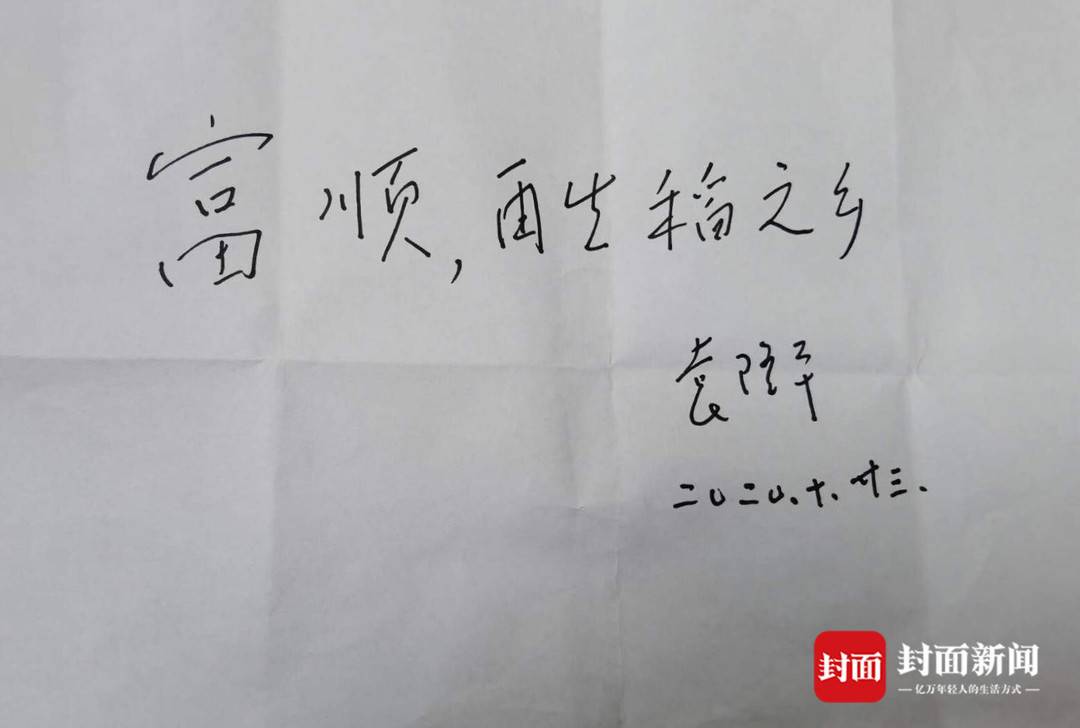 富顺,再生稻之乡
袁隆平
二〇二〇.十.廿三.
封面
封面新闻
亿万年轻人的生活方式